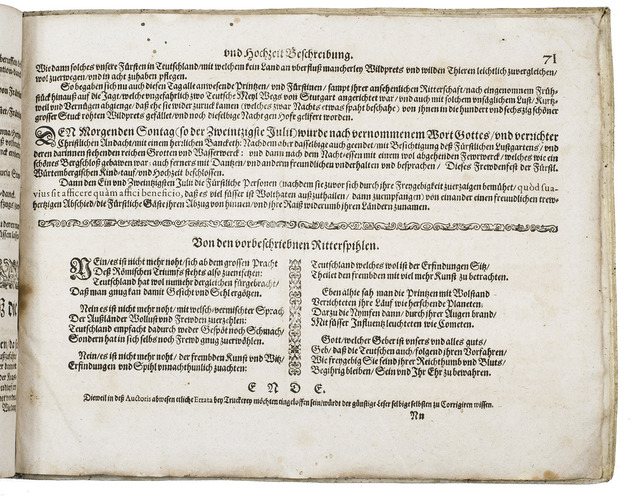 vnd Hochzeit Beschreibung. 71
Wie dann solches vnsere Fürsten in Teutschland/mit welchem kein Land an vberfluß mancherley Wildprets vnd wilden Thieren leichtlich zuvergleichen/
wol zuerwegen/vnd in acht zuhaben pflegen.
So begaben sich nu auch diesen Tag alle anwesende Printzen/ vnd Fürstinen/ sampt ihrer ansehenlichen Ritterschaft/nach eingenommem Früh-
stück hinauß auf die Jagt/welche vngefährlich zwo Teutsche Meyl Wegs von Stutgart angerichtet war/vnd auch mit solchem vnsäglichem Lust/Kurtz-
weil vnd Vernügen abgieng/daß ehe sie wider zuruck kamen (welches zwar Nachts etwas spaht beschahe) von ihnen in die hundert vnd sechszig schöner
grosser Stuck rohten Wildprets gefället/vnd noch dieselbige Nacht gen Hofe geliefert worden.
DEN Morgenden Sontag (so der Zweintzigste Julii) wurde nach vernommenem Wort Gottes/ vnd verrichter
Christlichen Andacht/mit einem herrlichen Bancketh: Nachdem aber dasselbige auch geendet/mit Besichtigung deß Fürstlichen Lustgartens/vnd
deren darinnen stehenden reichen Grotten vnd Wasserwerck: vnd dann nach dem Nacht-essen mit einem wol abgehenden Fewrwerck/welches wie ein
schönes Bergschloß gebawen war: auch ferners mit Dantzen/vnd andern freundlichen vnderhalten vnd besprachen/ Dieses Frewdenfest der Fürstl.
Würtembergischen Kind-tauf/vnd Hochzeit beschlossen.
Dann den Ein vnd Zweintzigsten Julii die Fürstliche Personen (nachdem sie zuvor sich durch ihre Freygebigkeit zuerzaigen bemühet/ quòd sua-
vius sit afficere quàm affici beneficio, daß es viel süsser ist Wolthaten außzuthailen/ dann zuempfangen) von einander einen freundlichen trew-
hertzigen Abschied/die Fürstliche Gäste ihren Abzug von hinnen/vnd ihre Raiß widerumb ihren Ländern zunamen.
Von den vorbeschriebnen Ritterspihlen.
NEin/es ist nicht mehr noht/sich ab dem grossen Pracht
Deß Römischen Triumfs stehts also zuentsetzen:
Teutschland hat wol numehr dergleichen fürgebracht/
Daß man gnug kan damit Gesicht vnd Sehl ergötzen.
Nein es ist nicht mehr noht/mit welsch-vermischter Sprach
Der Außländer Wollust vnd Frewden zuerzehlen:
Teutschland empfacht dadurch weder Gespöt noch Schmach/
Sondern hat in sich selbs noch Frewd gnug zuerwöhlen.
Nein/es ist nicht mehr noht/ der frembden Kunst vnd Witz/
Erfindungen vnd Spihl vnnachthunlich zuachten:
Teutschland welches wol ist der Erfindungen Sitz/
Theilet den frembden mit viel mehr Kunst zu betrachten.
Eben alhie sah man die Printzen mit Wolstand
Verrichteten ihre Läuf wie herschende Planeten/
Darzu die Nymfen dann/ durch ihrer Augen brand/
Mit süsser Influentz leuchteten wie Cometen.
Gott/welcher Geber ist vnsers vnd alles guts/
Geb/ daß die Teutschen auch/ folgend ihren Vorfahren/
Wie freygebig Sie seind ihrer Reichthumb vnd Bluts/
Begihrig bleiben/ Sein vnd Ihr Ehr zu bewahren.
E N D E.
Dieweil in deß Auctoris abwesen etliche Errata bey Truckerey möchten eingeloffen sein/würdt der günstige Leser selbige selbsten zu Corrigiren wissen.
Nn